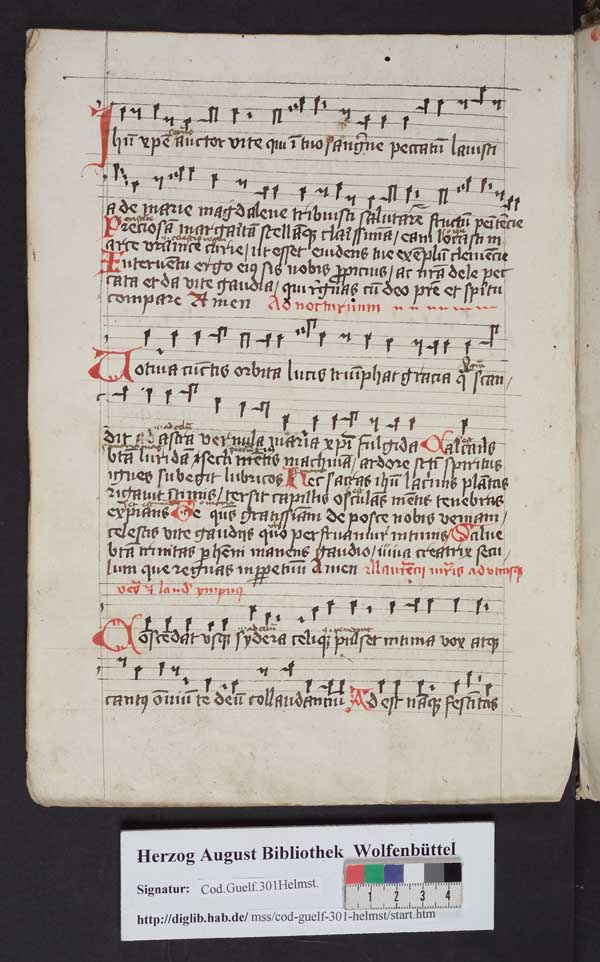 Jhu xpe auctor vite qui i tuo sangwe peccatu lavisti
ade marie magdalene tribuisti salutare fructu penitencie
Preciosa margarita stellaq clarissima, eam locasti in
arce
Interventu ergo ei sis nobis ppicius, ac nra dele pec
cata et da vite gaudia, qui regnas cu deo pre et spiritu
compare Amen Ad nocturnum
Votiva cunctis orbita lucis triumphat gracia q scan,
dit ad astra vernula maria xpi fulgida Calcans
bta luridam secti mentis machina, ardore sci spiritus
ignes subegit lubricos Hec sacras ihu lacrimis plantas
rigavit tersit capillis osculans mentis tenebras
expians Te qus gratissiam de posce nobis veniam,
celestis vite gaudiis quo perfruamur intimis Salve
bta trinitas phenni manens gaudio, una creatrix secu,
lum que regnas in ppetuum Amen Laurencii mris ad utrasq
ves et laud ympnus
Conscendat usq sydera celiq pulset intima vox atq
cantus omniu te deu collaudantiu Adest naq festivitas
Herzog August Bibliothek Wolfenbüttel
Signatur: Cod.Guelf.301Helmst.
http://diglib.hab.de/ mss/cod-guelf-301-helmst/start.htm
1 2 3 4